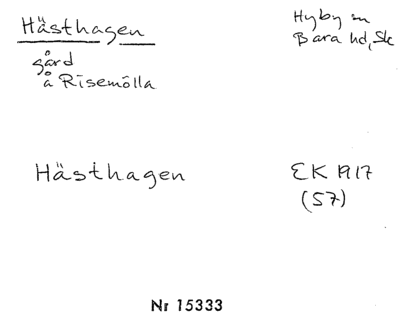 Hästhagen
Hyby sn
Bara hd, Sk
gård
å Risemölla
Hästhagen
EK 1917
(57)
Nr 15333